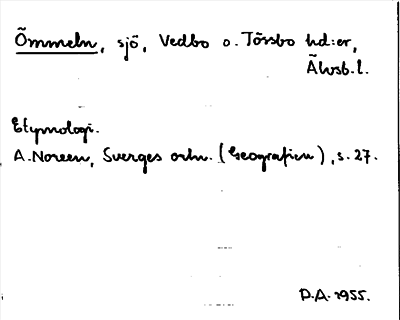 Ömmeln, sjö, Vedbo o. Tössbo hd:er,
Älvsb.l.
Etymologi.
A. Noreen, Sverges ortn. (Geografien), s. 27.
D.A. 1955.